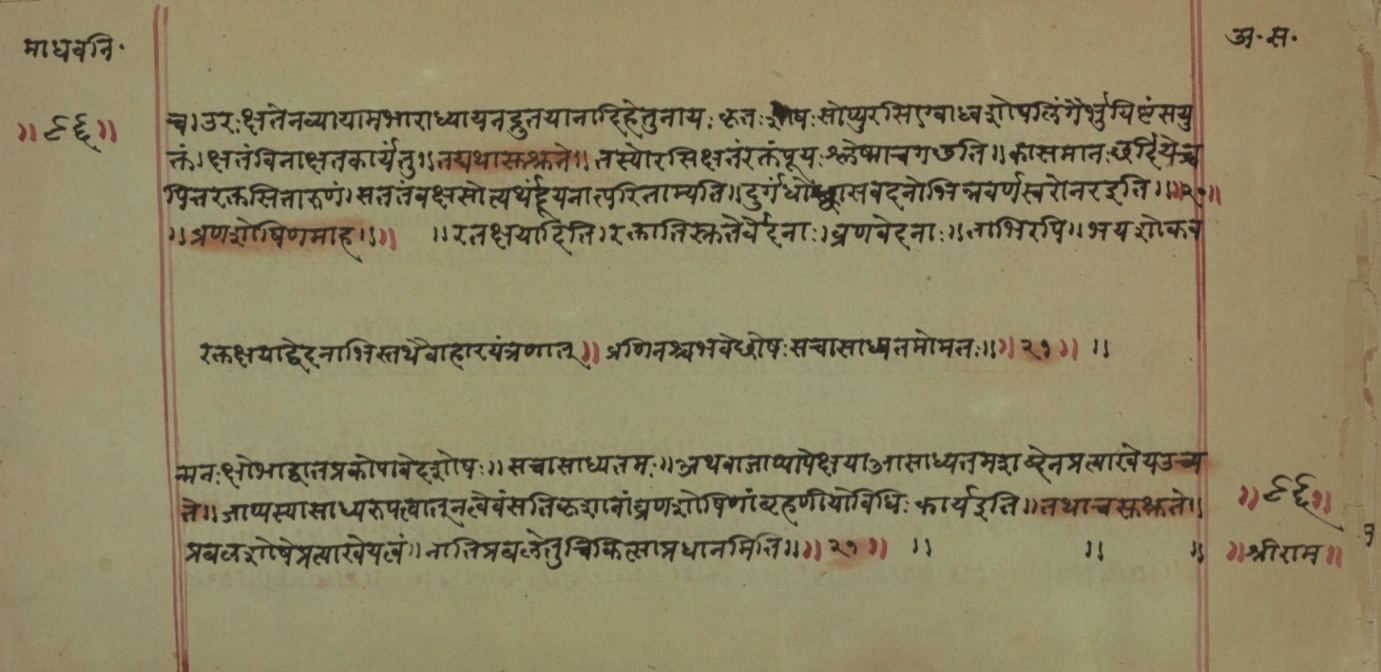 माधवनि॰
अ॰स॰
॥९६॥
च। उरःक्षतेनव्यायामभाराध्यायनद्रुतयानादिहेतुनायः कृतः शोषः सोप्युरसिएवाध्वशोषलिंगैर्भुयिष्टंसयु
क्तं। क्षतंविनाक्षतकार्यंतु॥ तद्यथासुश्रुते॥ तस्योरसिक्षतंरक्तंपूयः श्लेष्माचगछति॥ कासमानः छर्दियेच्च
पित्तरक्तसितारुणं। सततंवक्षसोत्यर्थं परिताम्यति॥ दुर्गंधो वदनोभिन्नवर्णस्वरोनरइति॥ ॥२०॥
॥व्रणशोषिणमाह॥ ॥ ॥रतक्षयादिति। रक्तातिस्रुतेर्वेदनाः। व्रणवेदनाः॥ ताभिरपि॥ भयशोकव
रक्तक्षयाद्वेदनाभिस्तथैवाहारयंत्रणात्॥ व्रणिनश्चभवेछोषः सचासाध्यतमोमतः॥ ॥२१॥ ॥
न्मनःक्षोभाद्वातप्रकोपाचेदशोषः॥ सचासाध्यतमः॥ अथवाजाप्यापेक्षयाआसाध्यतमशब्देनप्रत्याखेयउच्य
ते॥ जाप्यस्यासाध्यरुपत्वात्नत्वेवंसतिकृशानांव्रणशोषिणांबृहणीयोविधिः कार्यइति॥ तथाचसुश्रुते॥
प्रबलशोषेप्रत्याखेयत्वं॥ नातिप्रबलेतुचिकित्साप्रधानमिति॥ ॥२१॥ ॥ ॥ ॥
॥९६॥
॥श्रीराम॥